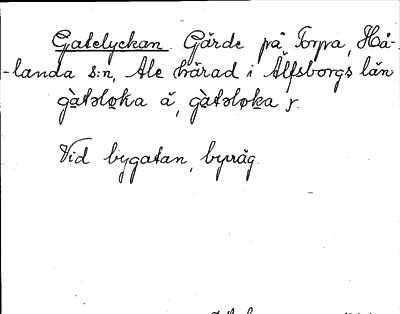 Gatelyckan. Gärde på Torpa, Hå-
-landa s:n, Ale härad i Älfsborgs län
gàtəlo̱ka å, gàtəlo̱ka y.
Vid bygatan, byväg.